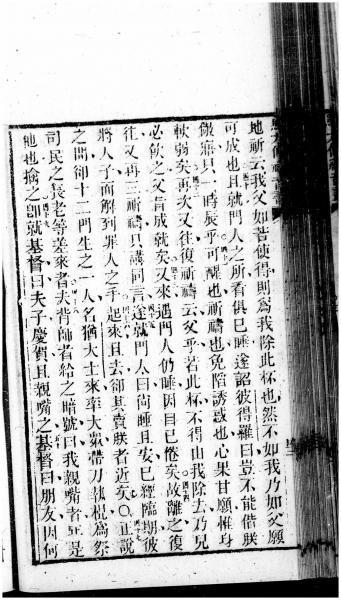 地祈云我父如若使得則為我除此杯也然不如我乃如父願
可成也且就門人之所看俱已睡遂詔彼得羅曰豈不能偕朕
儆寤只一時辰乎可醒也祈禱也免陷誘惑也心果甘願惟身
軟弱矣再次又往復祈禱云父乎若此杯不得由我除去乃兄
必飲之父旨成就矣又來遇門人仍睡因目已倦矣故離之復
往又再三祈禱只講同言遂就門人曰尚睡且安已經臨期彼
將人子面解到罪人之手起來且去卻其賣朕者近矣○正說
之間卻十二門生之一人名猶大士來率大眾帶刀執棍為祭
司民之長老等差來者夫背師者給之暗號曰我親嘴者正是
他也擒之即就基督曰夫子慶賀且親嘴之基督曰朋友因何